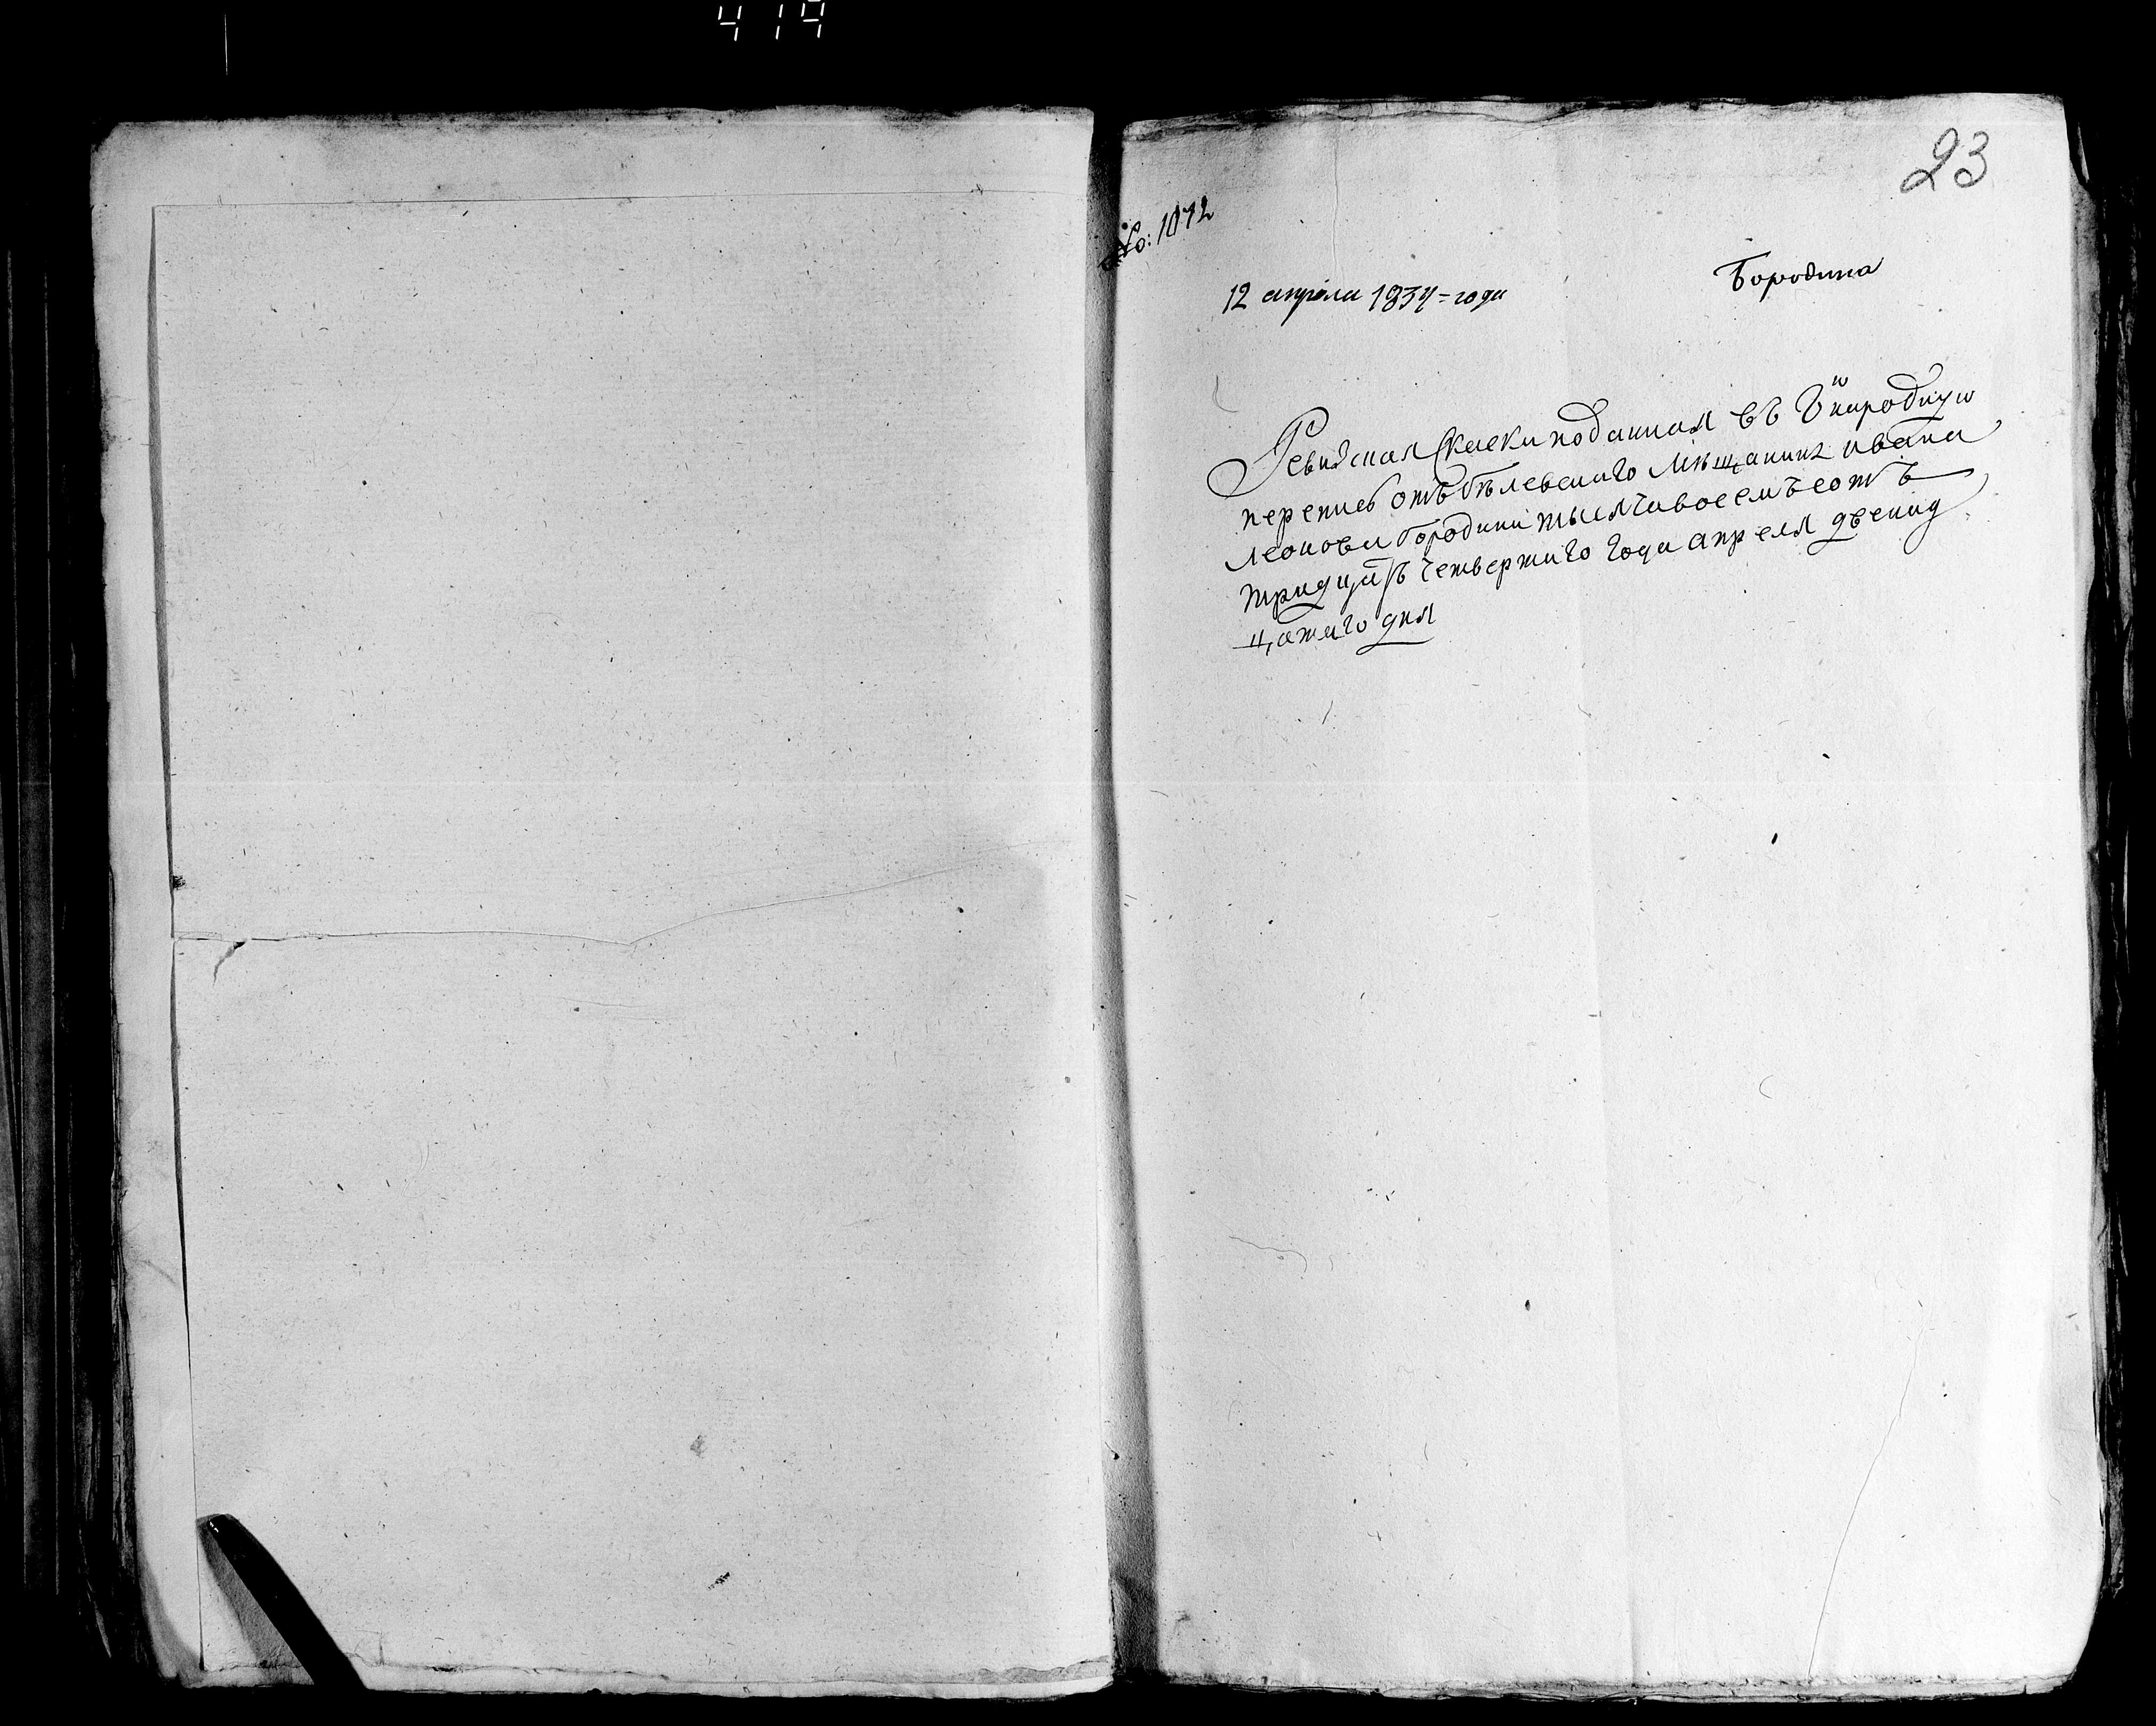 414
23
№: 1072
12 апреля 1834 = года
Бородина
Ревиская Скаска поданная въ Ѣ народную
перепись отъ бѣлевскаго мѣщанина ивана
леонова бородина тысяча восемъ сотъ
тридцать четвертаго года апреля двенад
цатаго дня